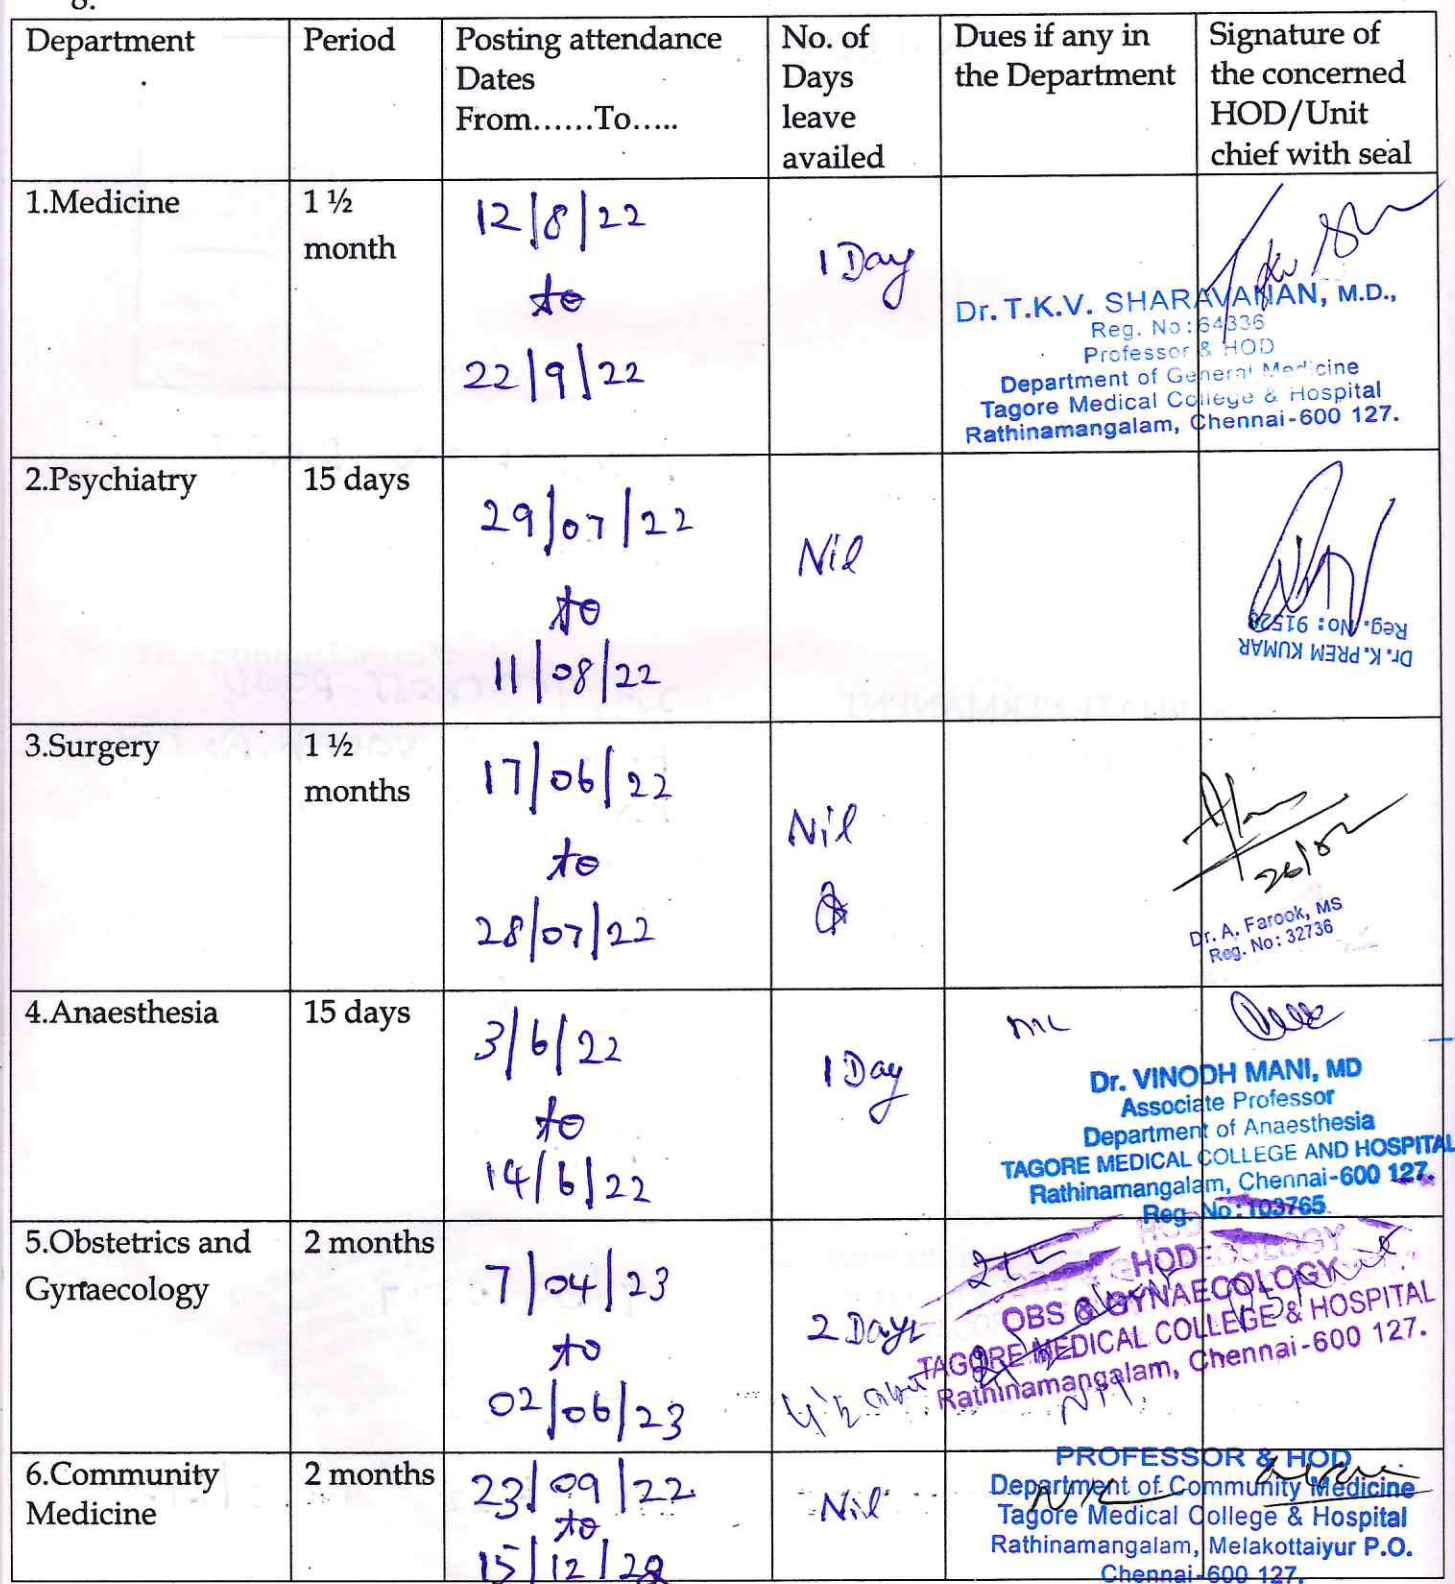 8.
Department
Period
Posting attendance
Dates
From......To.....
No. of
Days
leave
availed
Dues if any in
the Department
Signature of
the concerned
HOD/Unit
chief with seal
1.Medicine
1 ½
month
12/8/22
to
22/9/22
1 Day
Dr. T.K.V. SHARAVANAN, M.D.,
Reg. No: 64336
Professor & HOD
Department of General Medicine
Tagore Medical College & Hospital
Rathinamangalam, Chennai-600 127.
2.Psychiatry
15 days
29/07/22
to
11/08/22
Nil
Dr. K. PREM KUMAR
Reg. No: 91528
3.Surgery
1 ½
months
17/06/22
to
28/07/22
Nil
Dr. A. Farook, MS
Reg. No: 32736
4.Anaesthesia
15 days
3/6/22
to
14/6/22
1 Day
Dr. VINODH MANI, MD
Associate Professor
Department of Anaesthesia
TAGORE MEDICAL COLLEGE AND HOSPITAL
Rathinamangalam, Chennai-600 127.
Reg. No: 103765
5.Obstetrics and
Gynaecology
2 months
7/04/23
to
02/06/23
2 Days
HOD
OBS & GYNAECOLOGY
TAGORE MEDICAL COLLEGE & HOSPITAL
Rathinamangalam, Chennai-600 127.
6.Community
Medicine
2 months
23/09/22
to
15/12/22
Nil
PROFESSOR & HOD
Department of Community Medicine
Tagore Medical College & Hospital
Rathinamangalam, Melakottaiyur P.O.
Chennai-600 127.